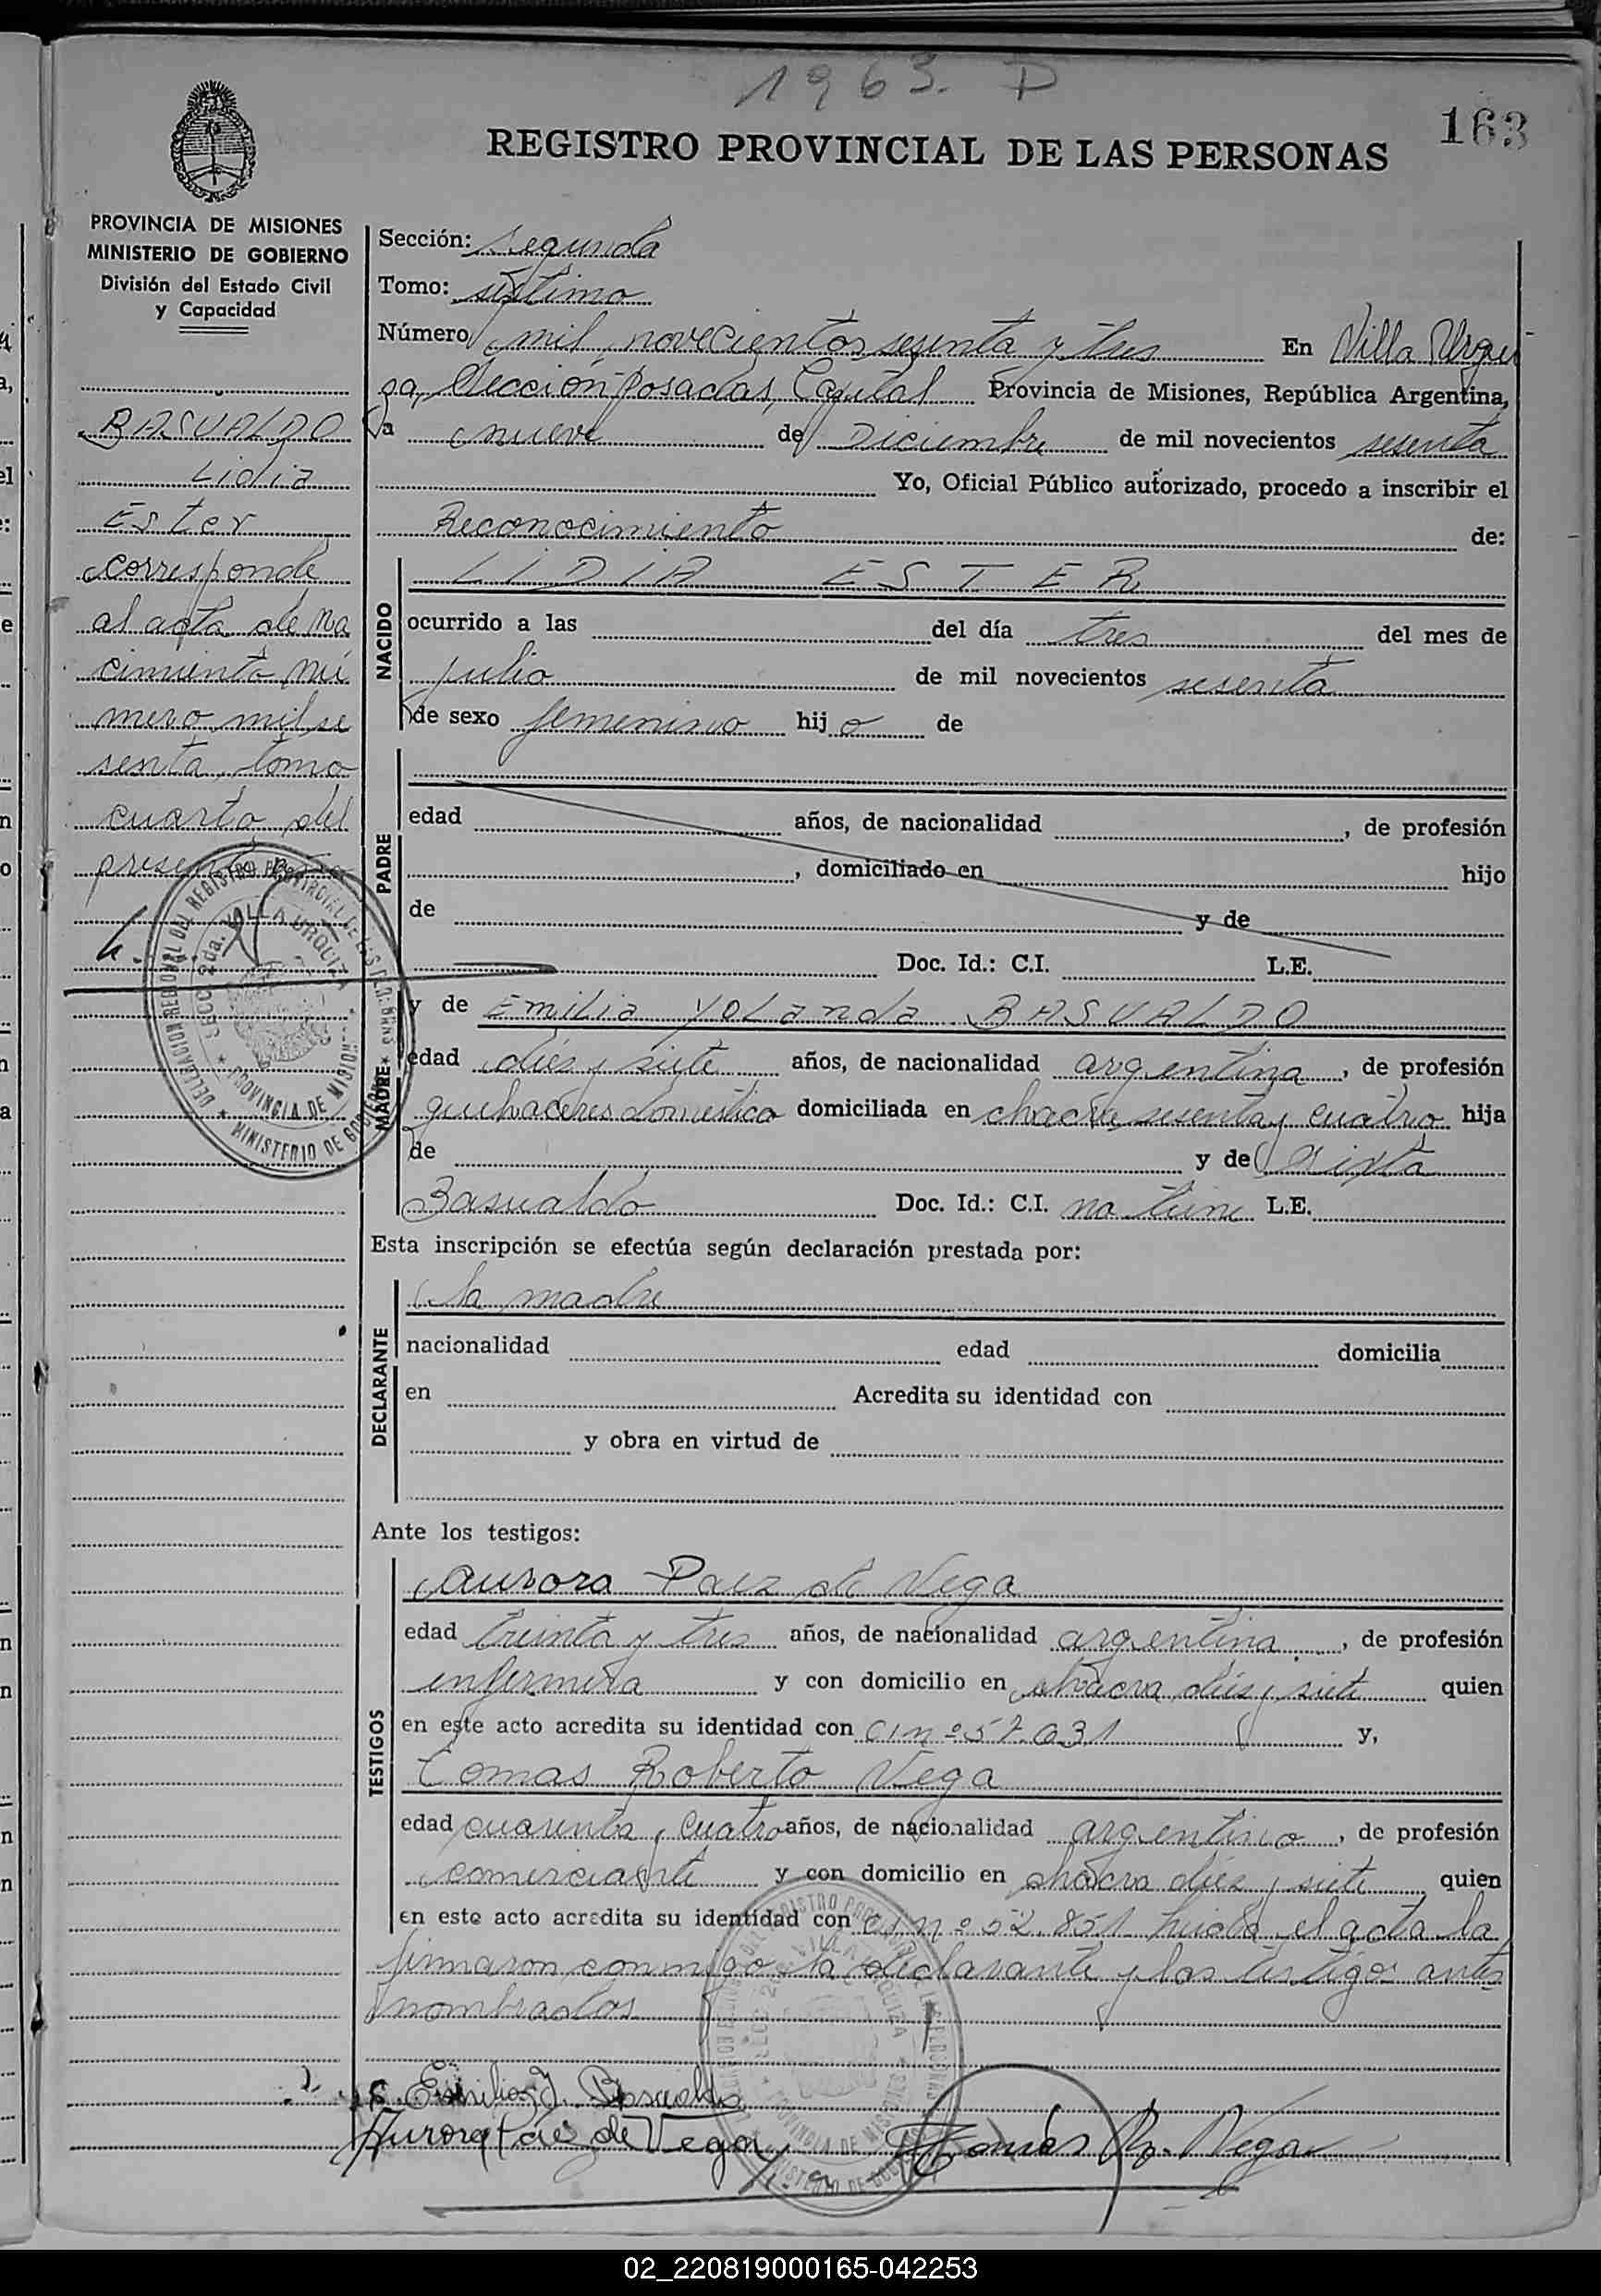 1963. D
163
REGISTRO PROVINCIAL DE LAS PERSONAS
PROVINCIA DE MISIONES
MINISTERIO DE GOBIERNO
División del Estado Civil
y Capacidad
BASUALDO
Lidia
Ester
corresponde
al acta de na
cimiento nú
mero mil se
senta, tomo
cuarto del
presente
Sección: segunda
Tomo: séptimo
Número mil novecientos sesenta y tres En Villa Urqui
za, Sección Posadas, Capital Provincia de Misiones, República Argentina,
a nueve de Diciembre de mil novecientos sesenta
Yo, Oficial Público autorizado, procedo a inscribir el
Reconocimiento de:
NACIDO
LIDIA ESTER
ocurrido a las del día tres del mes de
julio de mil novecientos sesenta
de sexo femenino hij o de
PADRE
edad años, de nacionalidad , de profesión
, domiciliado en hijo
de y de
Doc. Id.: C.I. L.E.
MADRE
y de Emilia Yolanda BASUALDO
edad diés y siete años, de nacionalidad argentina, de profesión
quehaceres domestico domiciliada en chacra sesenta y cuatro hija
de y de Sixta
Basualdo Doc. Id.: C.I. no tiene L.E.
Esta inscripción se efectúa según declaración prestada por:
DECLARANTE
la madre
nacionalidad edad domicilia
en Acredita su identidad con
y obra en virtud de
Ante los testigos:
TESTIGOS
Aurora Paez de Vega
edad treinta y tres años, de nacionalidad argentina, de profesión
enfermera y con domicilio en chacra diés y siete quien
en este acto acredita su identidad con CI nº 57.031 y,
Tomas Roberto Vega
edad cuarenta y cuatro años, de nacionalidad argentino, de profesión
comerciante y con domicilio en chacra diés y siete quien
en este acto acredita su identidad con CI nº 52.851 leida el acta la
firmaron conmigo la declarante y los testigos antes
nombrados.
Emilia Y. Basualdo
Aurora Páez de Vega
Tomás R. Vega
DELEGACION REGIONAL DEL REGISTRO PROVINCIAL DE LAS PERSONAS
SECC. 2da. VILLA URQUIZA
PROVINCIA DE MISIONES
MINISTERIO DE GOBIERNO
02_220819000165-042253